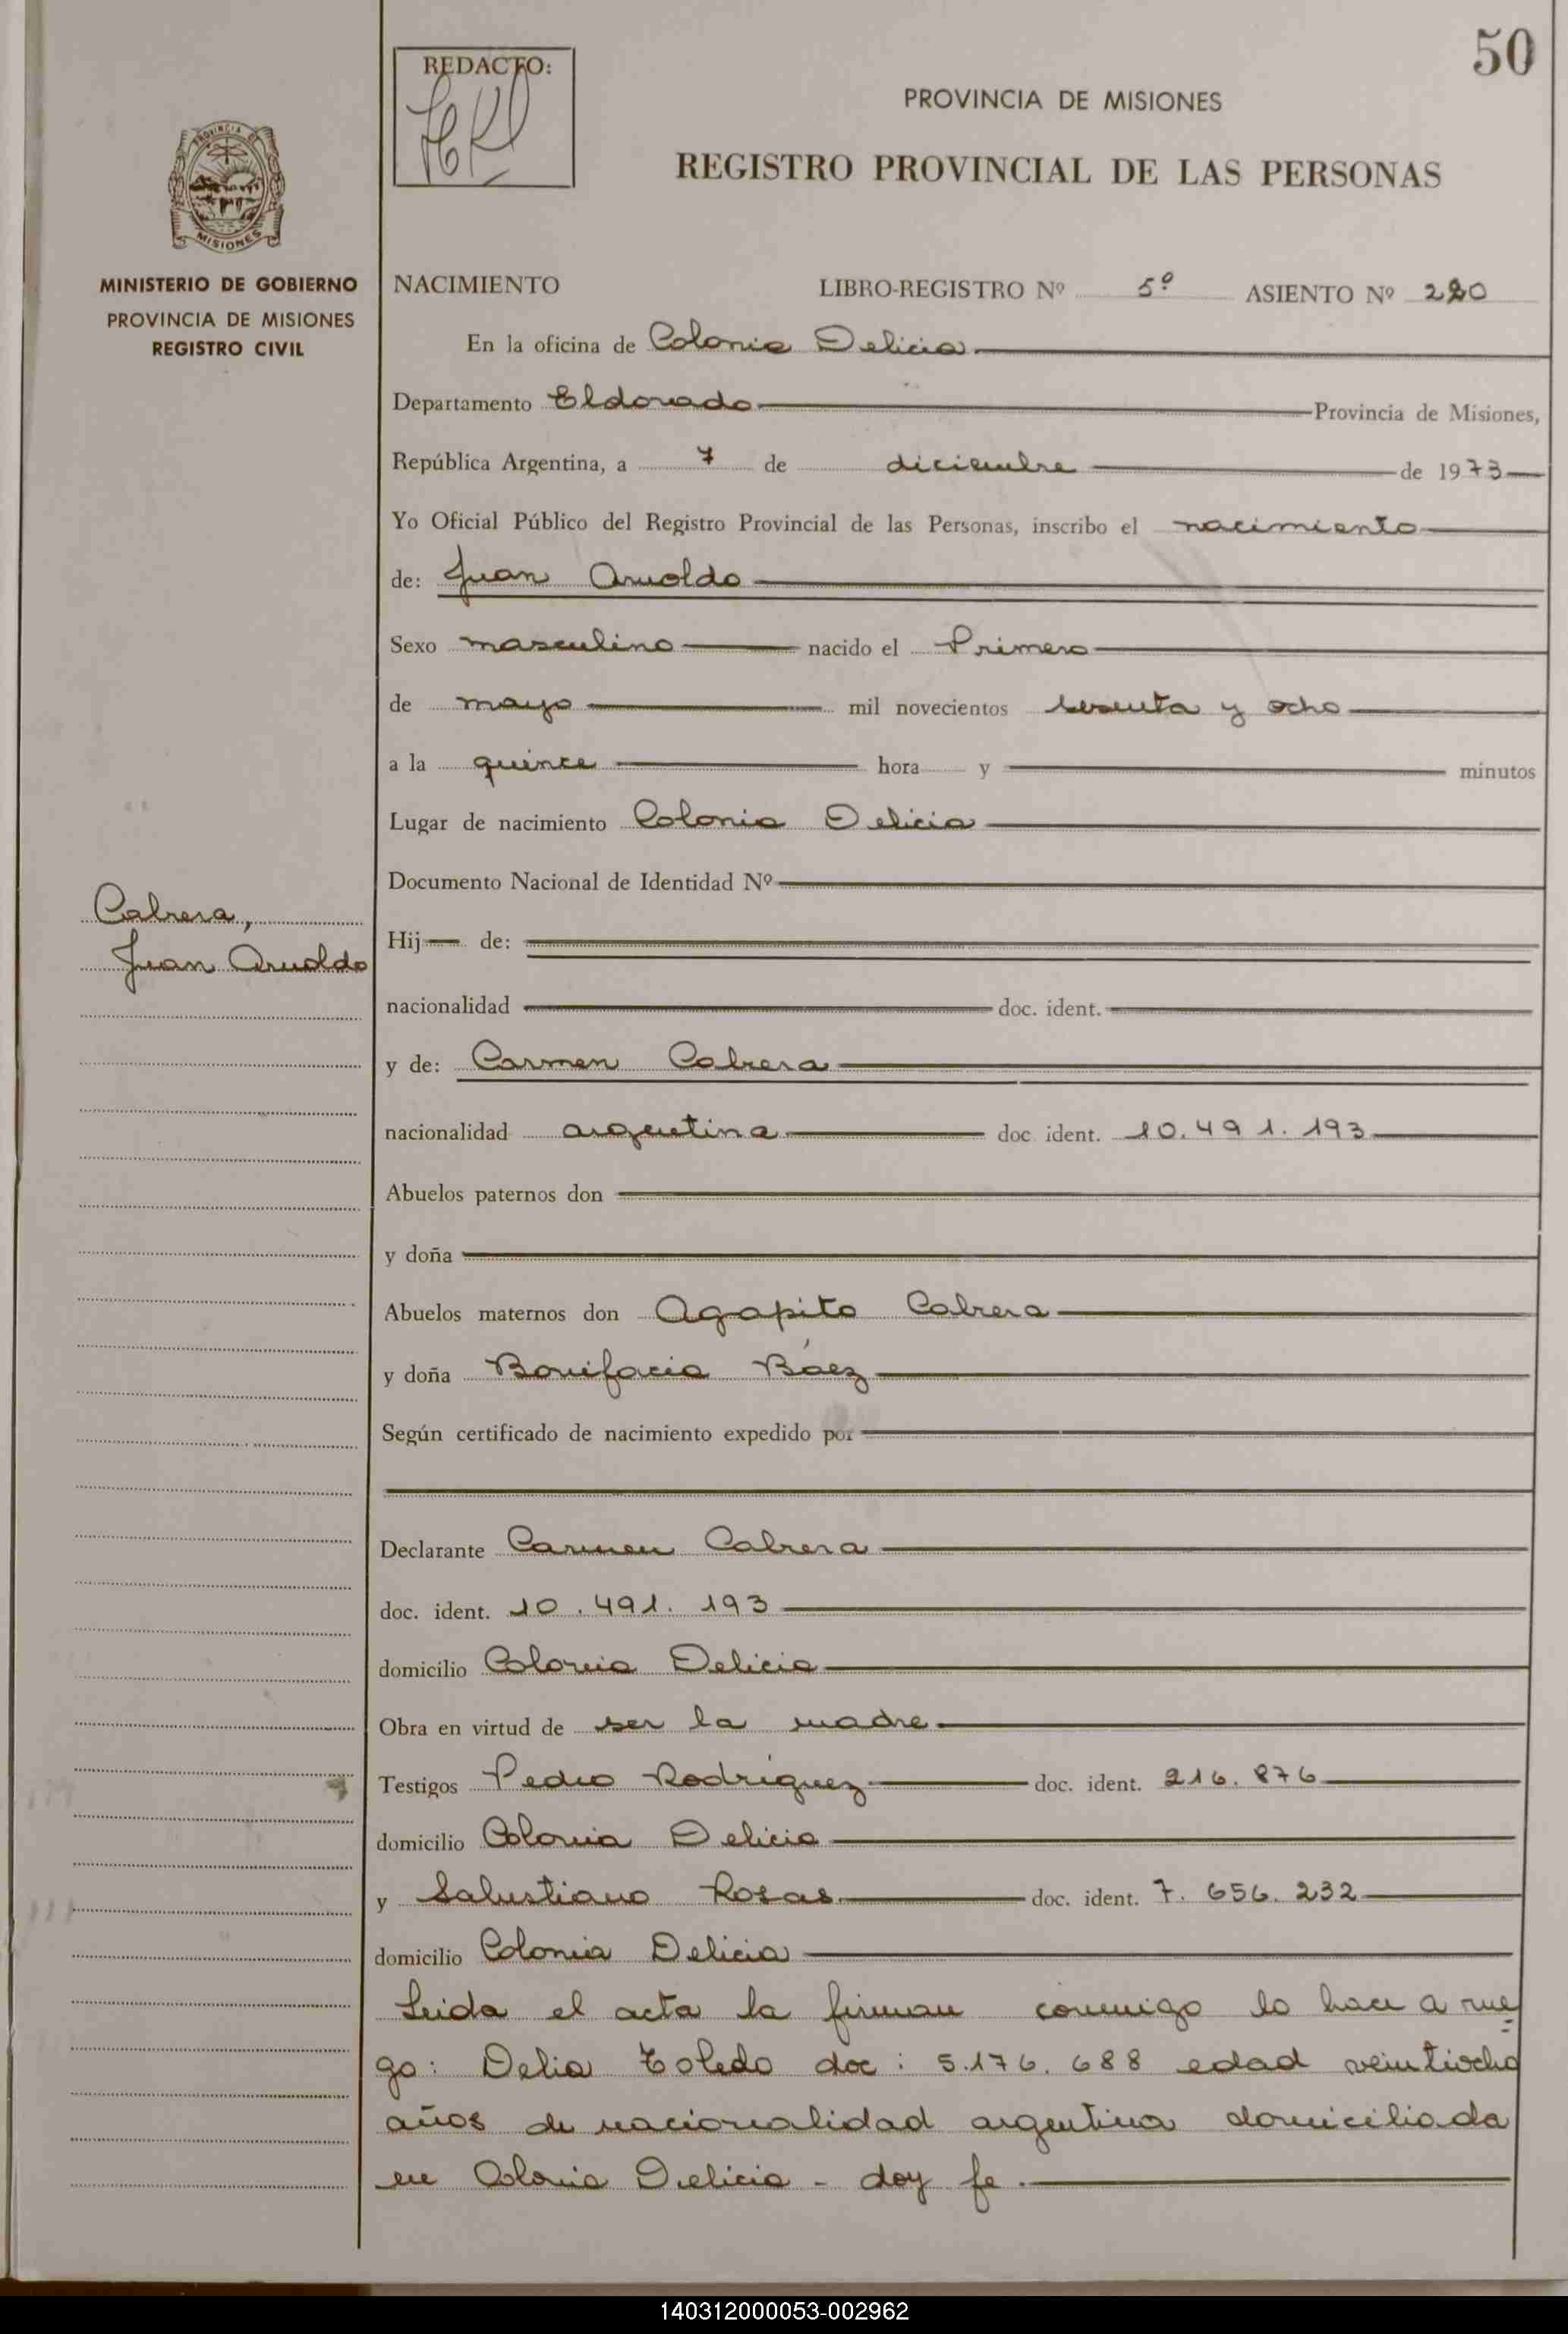 50
REDACTO:
PROVINCIA DE MISIONES
REGISTRO PROVINCIAL DE LAS PERSONAS
PROVINCIA DE MISIONES
MINISTERIO DE GOBIERNO
PROVINCIA DE MISIONES
REGISTRO CIVIL
NACIMIENTO LIBRO-REGISTRO Nº 5º ASIENTO Nº 220
En la oficina de Colonia Delicia
Departamento Eldorado Provincia de Misiones,
República Argentina, a 7 de diciembre de 1973
Yo Oficial Público del Registro Provincial de las Personas, inscribo el nacimiento
de: Juan Arnoldo
Sexo masculino nacido el Primero
de mayo mil novecientos sesenta y ocho
a la quince hora y minutos
Lugar de nacimiento Colonia Delicia
Documento Nacional de Identidad Nº
Cabrera,
Juan Arnoldo
Hij de:
nacionalidad doc. ident.
y de: Carmen Cabrera
nacionalidad argentina doc ident. 10.491.193
Abuelos paternos don
y doña
Abuelos maternos don Agapito Cabrera
y doña Bonifacia Báez
Según certificado de nacimiento expedido por
Declarante Carmen Cabrera
doc. ident. 10.491.193
domicilio Colonia Delicia
Obra en virtud de ser la madre
Testigos Pedro Rodríguez doc. ident. 216.876
domicilio Colonia Delicia
y Salustiano Rosas doc. ident. 7.656.232
domicilio Colonia Delicia
Leida el acta la firman conmigo lo hace a rue
go: Delia Toledo doc: 5.176.688 edad veintiocho
años de nacionalidad argentina domiciliada
en Colonia Delicia - doy fe.
140312000053-002962